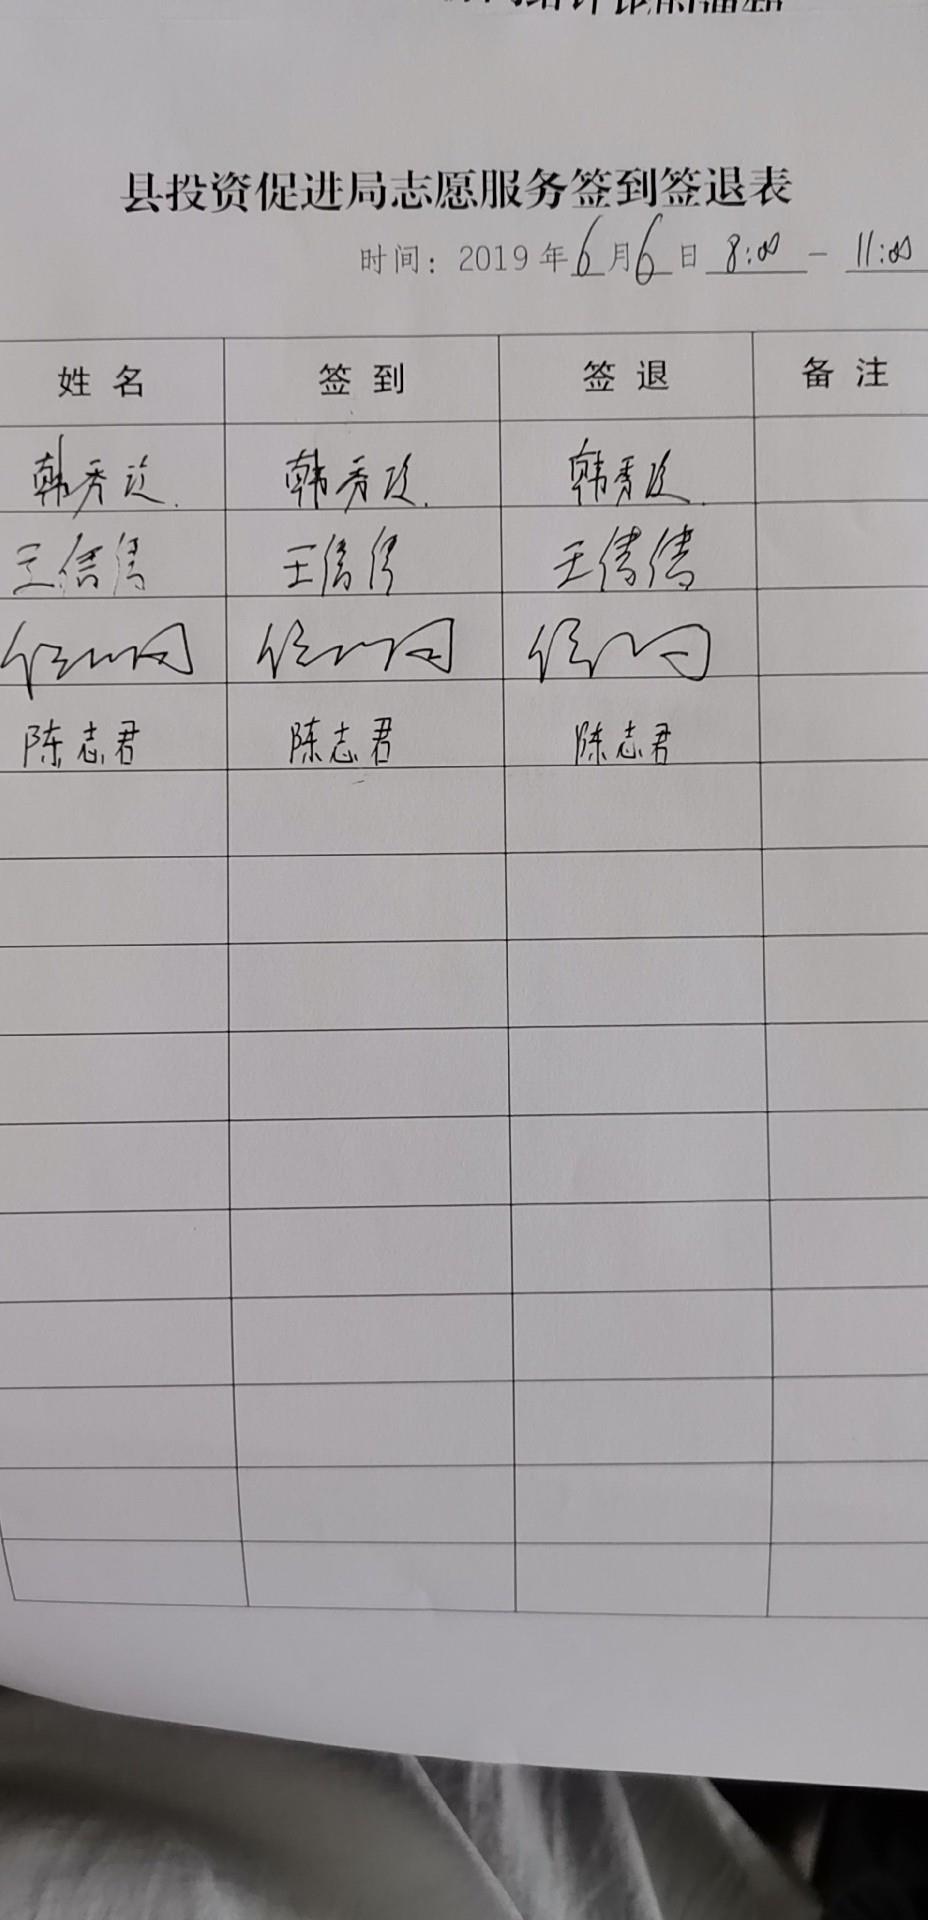 县投资促进局志愿服务签到签退表
时间：2019年6月6日 8:00 - 11:00
姓名 签到 签退 备注
韩秀
王倩倩 王倩倩 王倩倩
陈志君 陈志君 陈志君